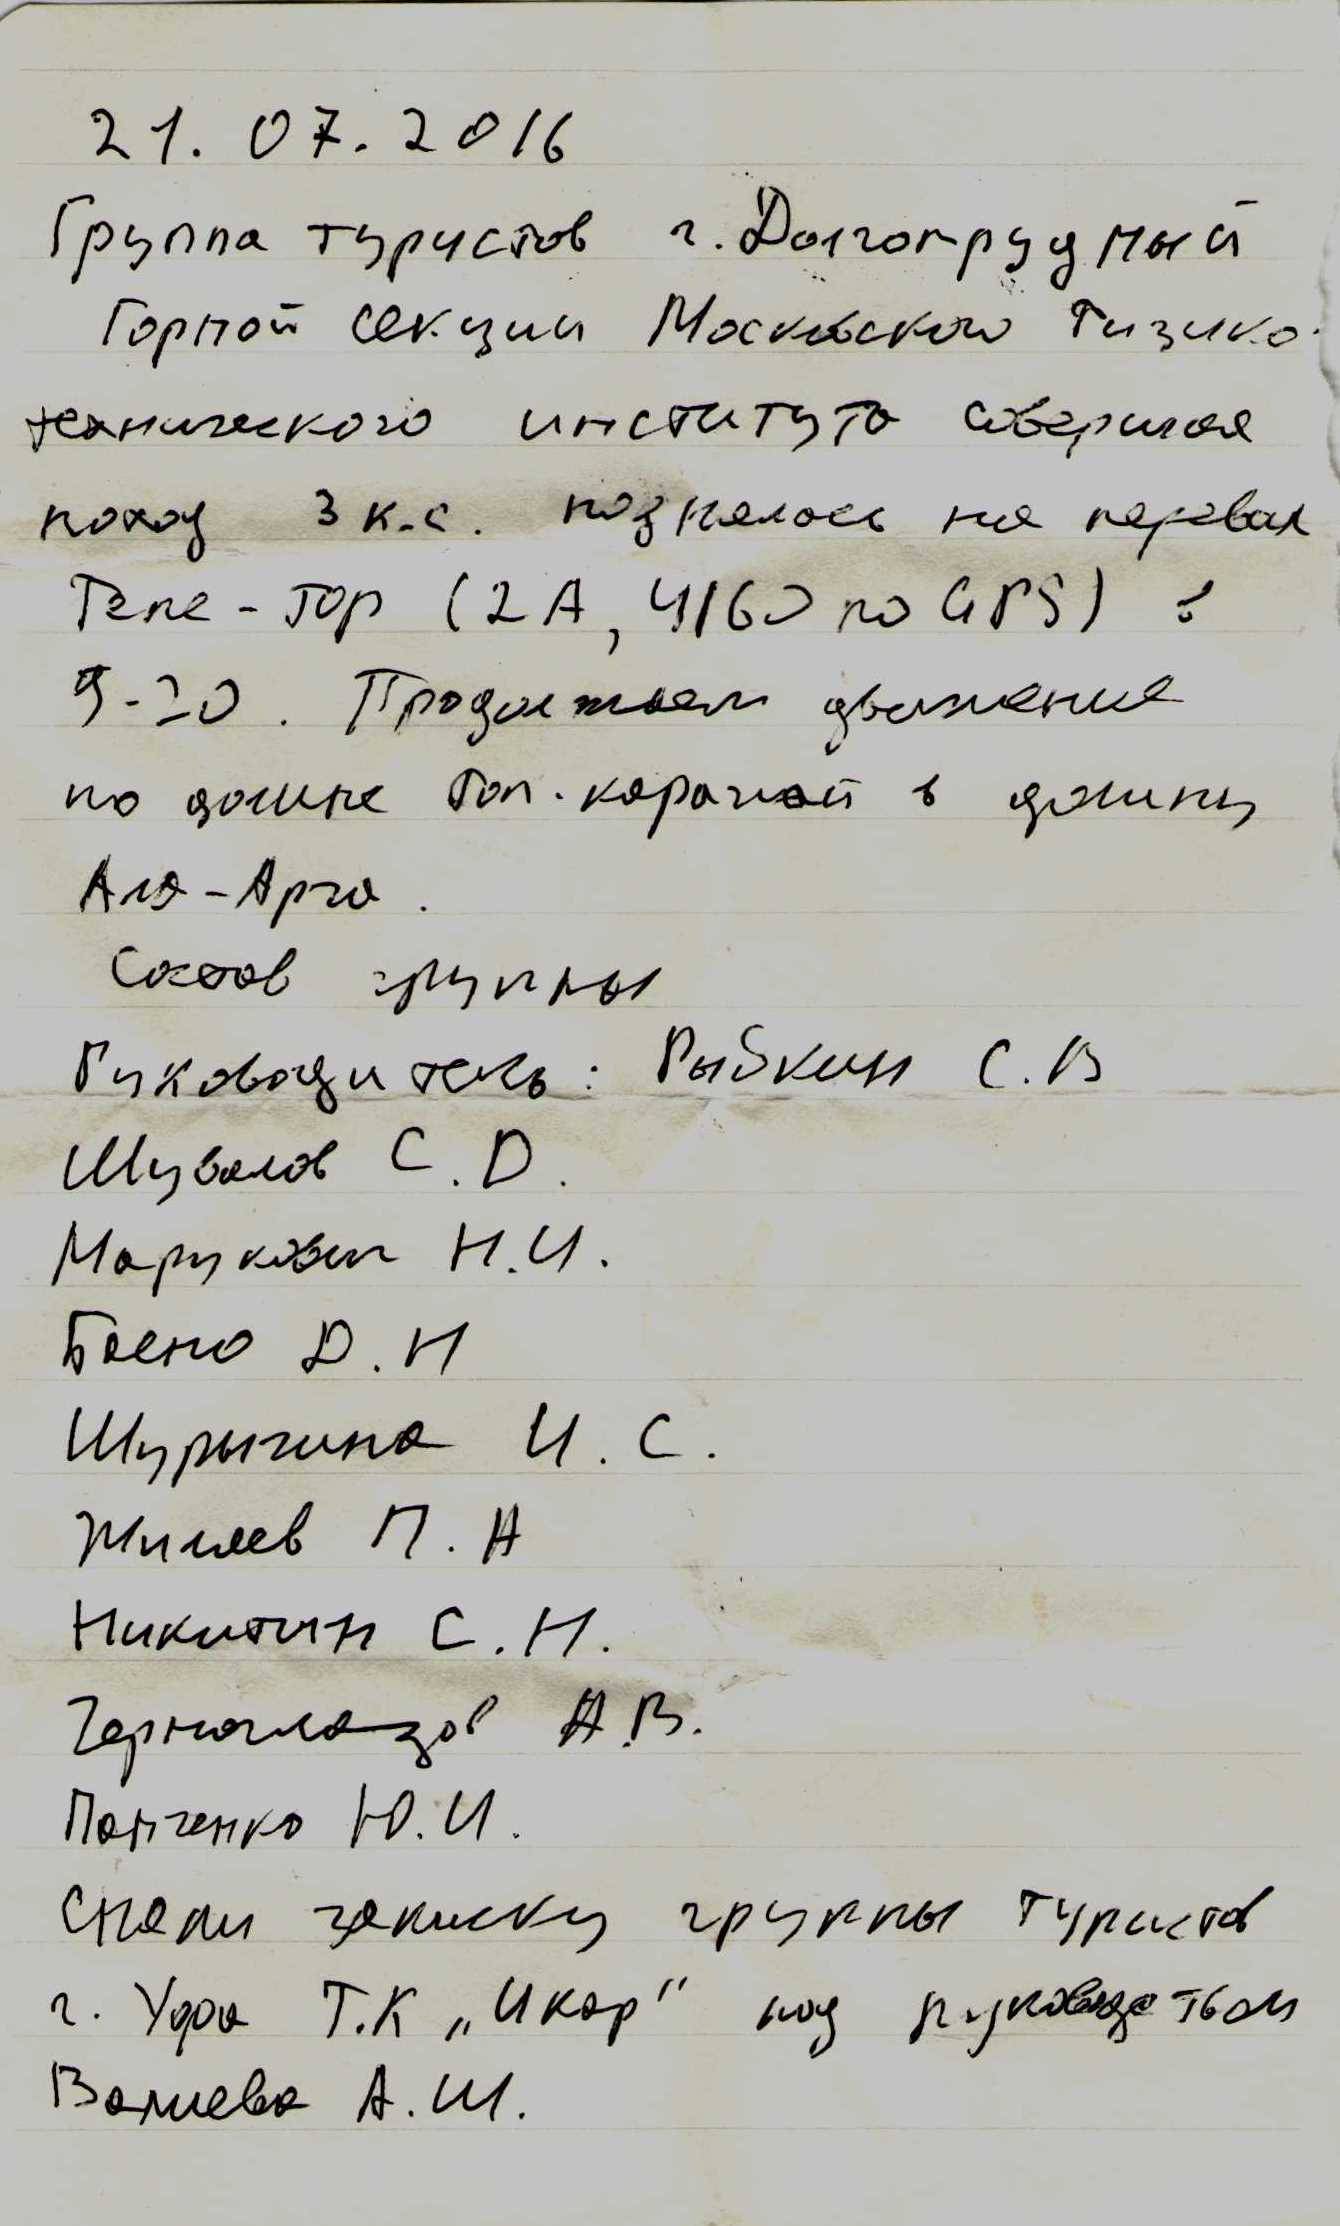 21.07.2016
Группа туристов г. Долгопрудный
Горной секции Московского Физико-
технического института совершая
поход 3 к.с. поднялась на перевал
Тепе-Тор (2А, 4160 по GPS) в
9-20. Продолжаем движение
по долине Топ-карагай в долину
Ала-Арча.
Состав группы
Руководитель: Рыбкин С.В
Шувалов С.D.
Марукович Н.И.
Баено D.Н
Шурыгина И.С.
Жиляев П.А
Никитин С.Н.
Черноглазов А.В.
Панченко Ю.И.
Сняли записку группы туристов
г. Уфа Т.К „Икар" под руководством
Валиева А.Ш.